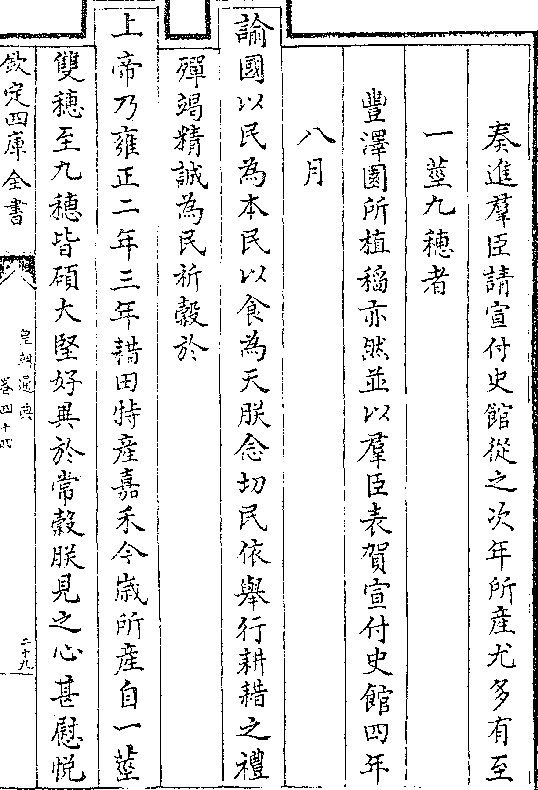 奏進羣臣請宣付史館從之次年所產尤多有至
一莖九穗者
豐澤園所植稻亦然並以羣臣表賀宣付史館四年
八月
諭國以民為本民以食為天朕念切民依舉行耕耤之禮
殫竭精誠為民祈穀於
上帝乃雍正二年三年耤田特產嘉禾今歲所產自一莖
雙穗至九穗皆碩大堅好異於常穀朕見之心甚慰悅
欽定四庫全書
皇朝通典
卷四十四
二十九